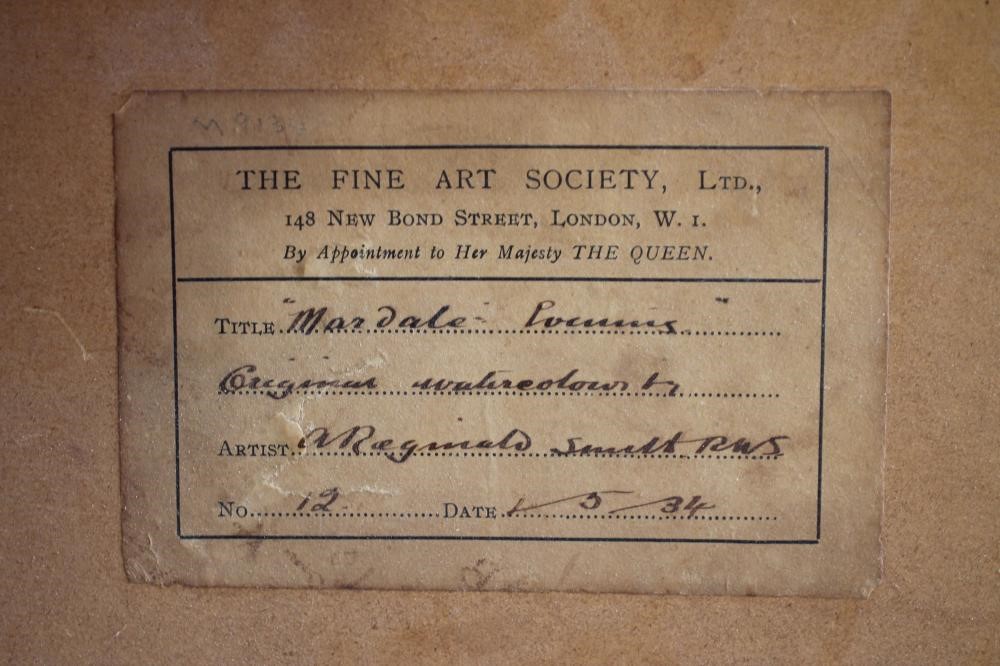 THE FINE ART SOCIETY, LTD.,
148 NEW BOND STREET, LONDON, W. 1.
By Appointment to Her Majesty THE QUEEN.
TITLE "Mardale - Evening"
Original watercolour by
ARTIST A Reginald Smith RWS
No. 12. DATE 1/5/34